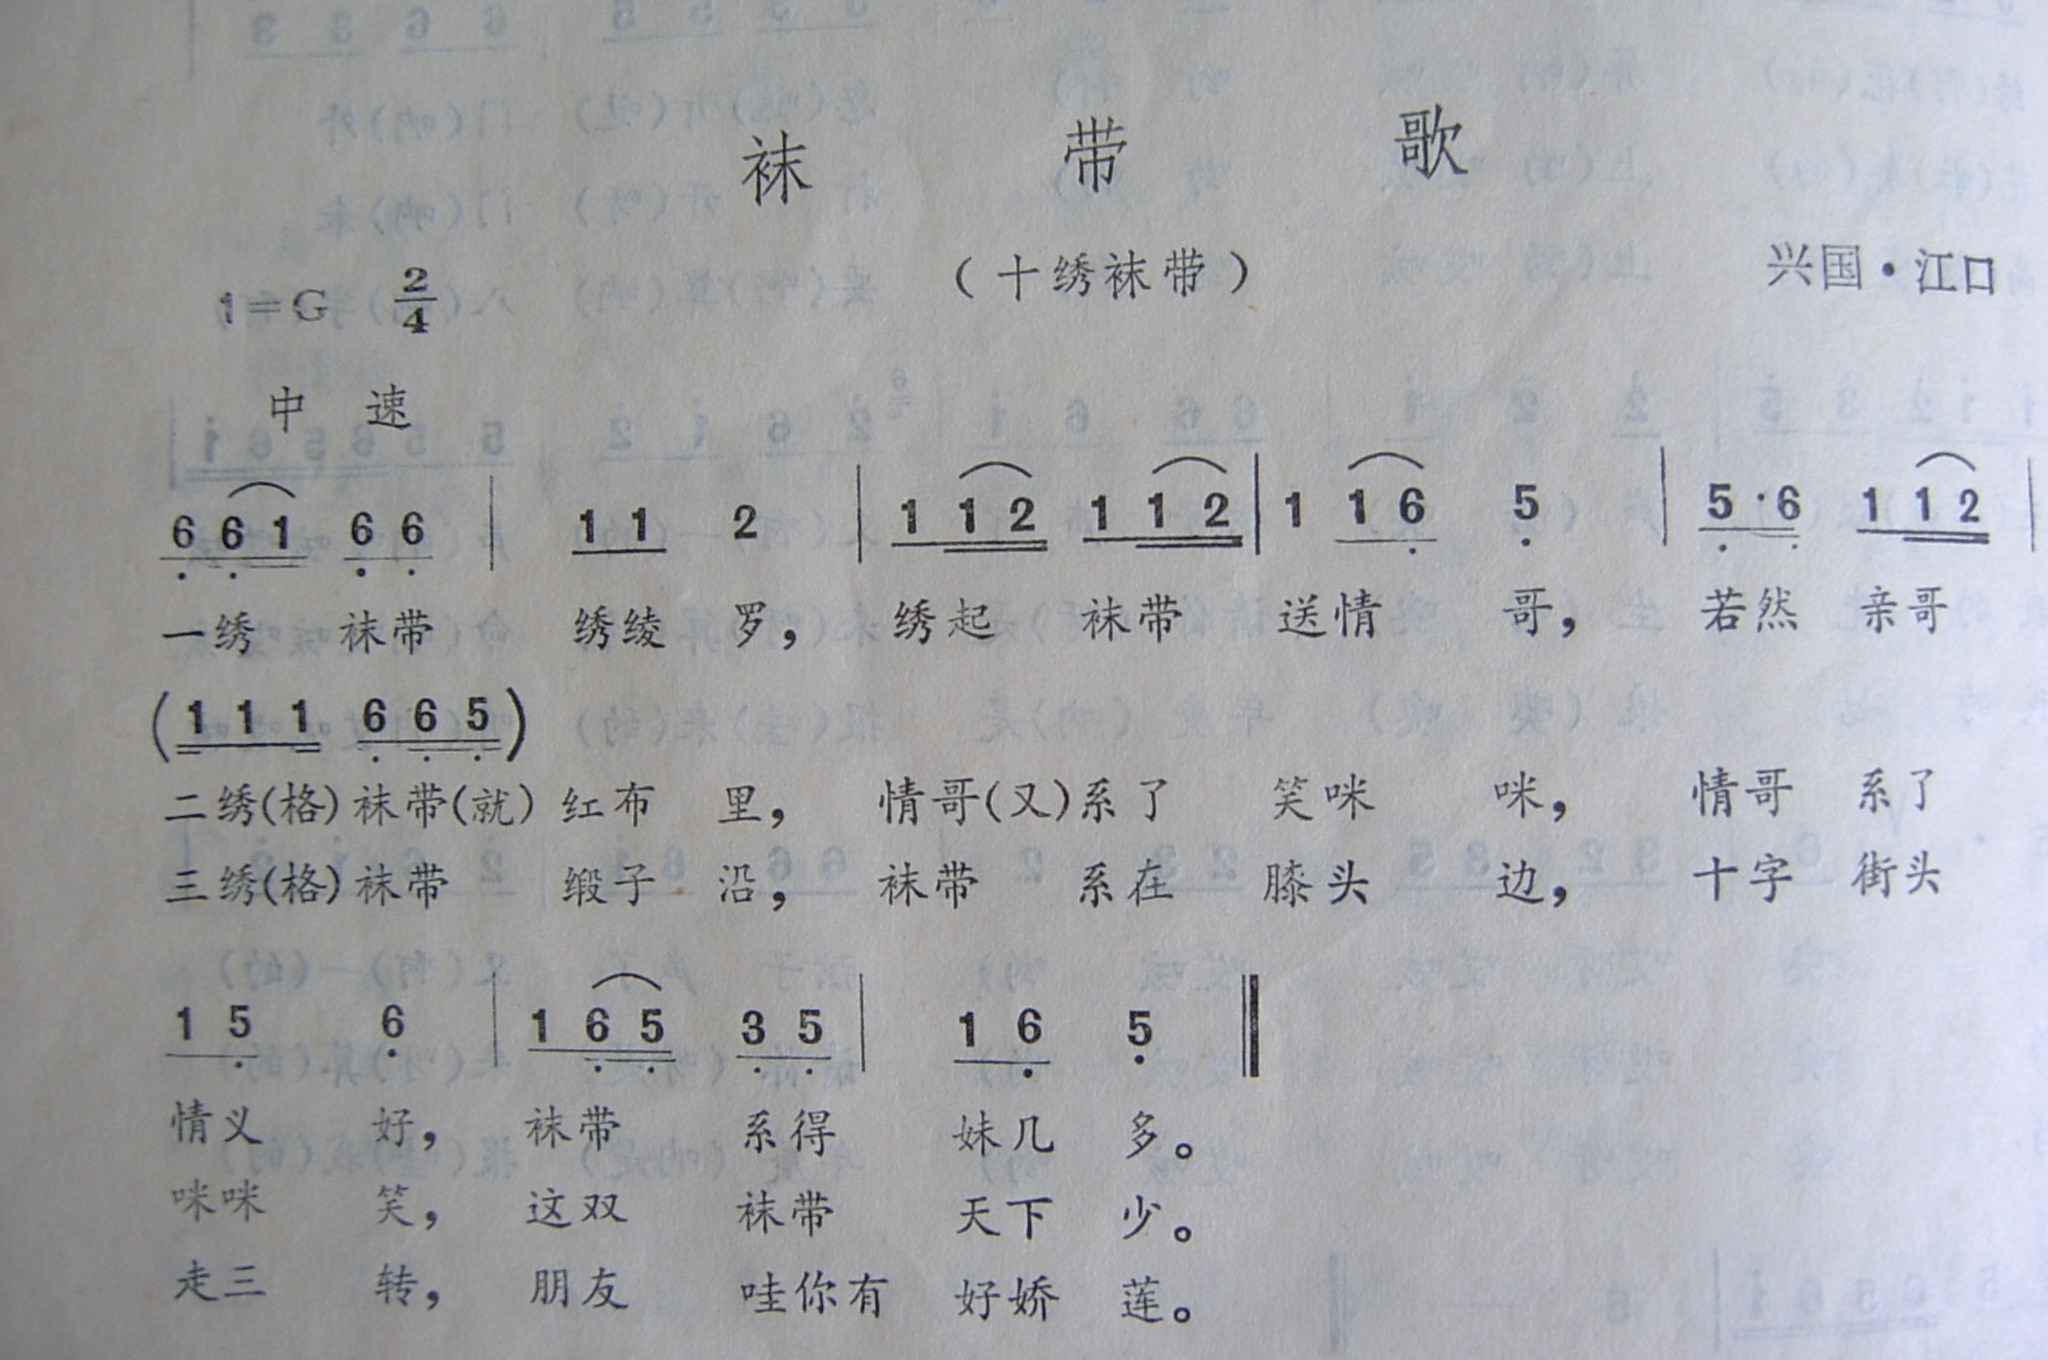 袜 带 歌
(十绣袜带)
兴国·江口
1=G 2/4
中 速
6 6 1 6 6 | 1 1 2 | 1 1 2 1 1 2 | 1 1 6 5 | 5 · 6 1 1 2 |
一绣 袜带 绣绫 罗, 绣起 袜带 送情 哥, 若然 亲哥
(1 1 1 6 6 5)
二绣(格)袜带(就) 红布 里, 情哥(又)系了 笑咪 咪, 情哥 系了
三绣(格)袜带 缎子 沿, 袜带 系在 膝头 边, 十字 街头
1 5 6 | 1 6 5 3 5 | 1 6 5 ‖
情义 好, 袜带 系得 妹几 多。
咪咪 笑, 这双 袜带 天下 少。
走三 转, 朋友 哇你有 好娇 莲。